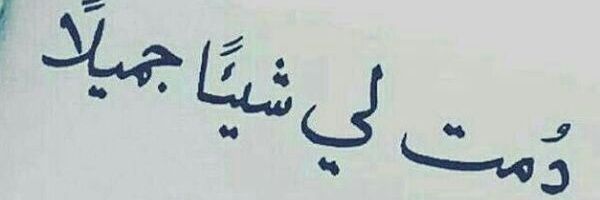 دُمت لي شيئًا جميلًا